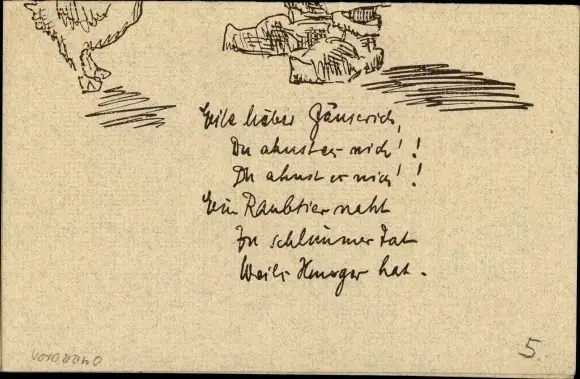 Eile lieber Gänserich,
Du ahnst er nich'!
Du ahnst er nich'!
Ein Raubtier naht
Zu schlimmer Tat
Weils Hunger hat.
5.